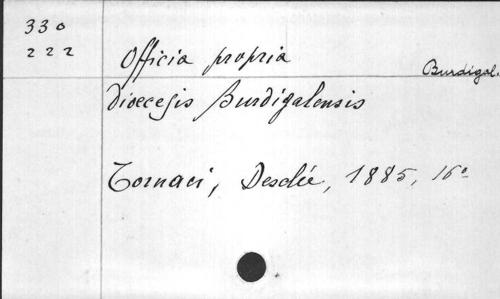 330
222
Officia propria
Burdigal.
Dioecesis Burdigalensis
Tornaci, Desclée, 1885, 16°